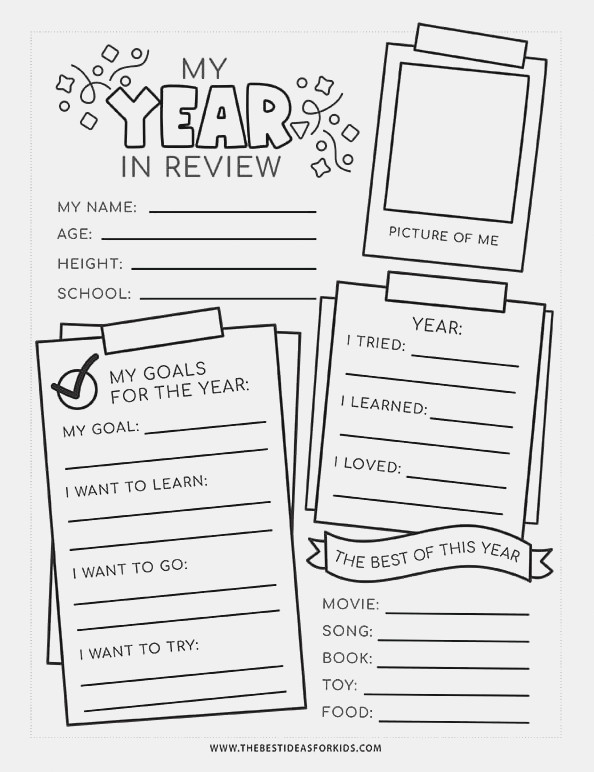 MY
YEAR
IN REVIEW
MY NAME:
AGE:
HEIGHT:
SCHOOL:
PICTURE OF ME
MY GOALS
FOR THE YEAR:
MY GOAL:
I WANT TO LEARN:
I WANT TO GO:
I WANT TO TRY:
YEAR:
I TRIED:
I LEARNED:
I LOVED:
THE BEST OF THIS YEAR
MOVIE:
SONG:
BOOK:
TOY:
FOOD:
WWW.THEBESTIDEASFORKIDS.COM